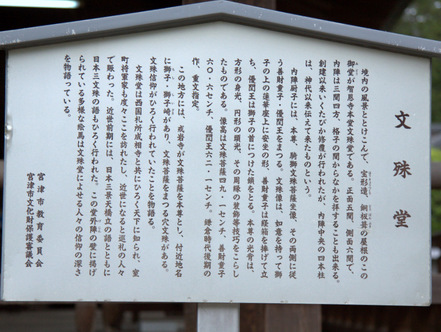 文殊堂
境内の風景ととけこんで、宝形造、銅板葺の屋根のこの
御堂が智恩寺本堂文殊堂である。正面五間、側面六間で、
内陣は三間四方、格子の間からなかを拝することも出来る。
創建以来いくたびか修理が行われたが、内陣中央の四本柱
は、神代以来伝えて来たものという。
内陣厨子には、本尊、騎獅文殊菩薩坐像、その両側に従
う善財童子・優闐王をまつる。文殊像は、如意を持って獅
子の上の蓮華座上に安坐の形、善財童子は経筥を捧げて立
ち、優闐王は獅子の首につけた鎖をとる。本尊の光背は、
方形の身光、円形の頭光、その周縁の景飾等技巧をこらし
たものである。像高は文殊菩薩四九・一センチ、善財童子
六〇・六センチ、優闐王六二・一センチ、鎌倉時代後期の
作、重文指定。
この地方には、戒岩寺が文殊菩薩を本尊とし、付近地名
に獅子・獅子崎があり、文殊菩薩をまつる六文殊がある。
文殊信仰がひろく行われていたことを物語る。
文殊堂は西国札所成相寺と共にひろく天下に知られ、室
町将軍家も度々ここを訪れたし、近世になると巡礼の人々
で賑わった。近世前期には、日本三景天橋立の語とともに
日本三文殊の語もひろく行われた。この堂外陣の壁に掲げ
られている多様な絵馬は文殊堂によせる人々の信仰の深さ
を物語っている。
宮津市教育委員会
宮津市文化財保護審議会